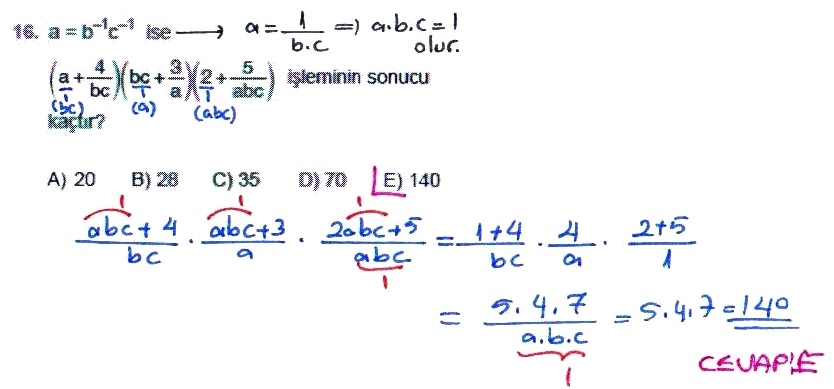 16. a = b⁻¹c⁻¹ ise → a = 1/b.c ⇒ a.b.c = 1 olur.
(a + 4/bc)(bc + 3/a)(2 + 5/abc) işleminin sonucu
1 1 1
(bc) (a) (abc)
kaçtır?
A) 20 B) 28 C) 35 D) 70 E) 140
1 1 1
abc + 4/bc . abc + 3/a . 2abc + 5/abc = 1 + 4/bc . 4/a . 2 + 5/1
1
= 5.4.7/a.b.c = 5.4.7 = 140
1
CEVAP:E